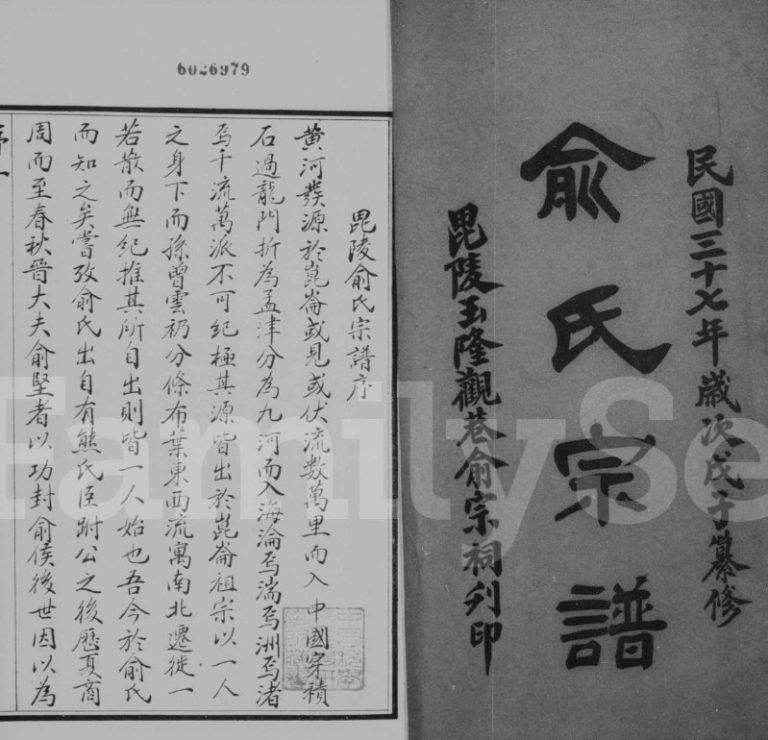 民國三十七年歲次戊子纂修
俞氏宗譜
毘陵玉隆觀巷俞宗祠列印
6026979
毘陵俞氏宗譜序
黄河發源於崑崙或見或伏流数萬里而入中國穿積
石過龍門折為孟津分為九河而入海淪焉湍焉洲焉渚
焉千流萬派不可紀極其源皆出於崑崙祖宗以一人
之身下而孫曾雲礽分條布葉東西流寓南北遷徙一
若散而無紀推其所自出則皆一人始也吾今於俞氏
而知之矣嘗攷俞氏出自有熊氏臣跗公之後歷夏商
周而至春秋晉大夫俞堅者以功封俞侯後世因以為
FamilySe